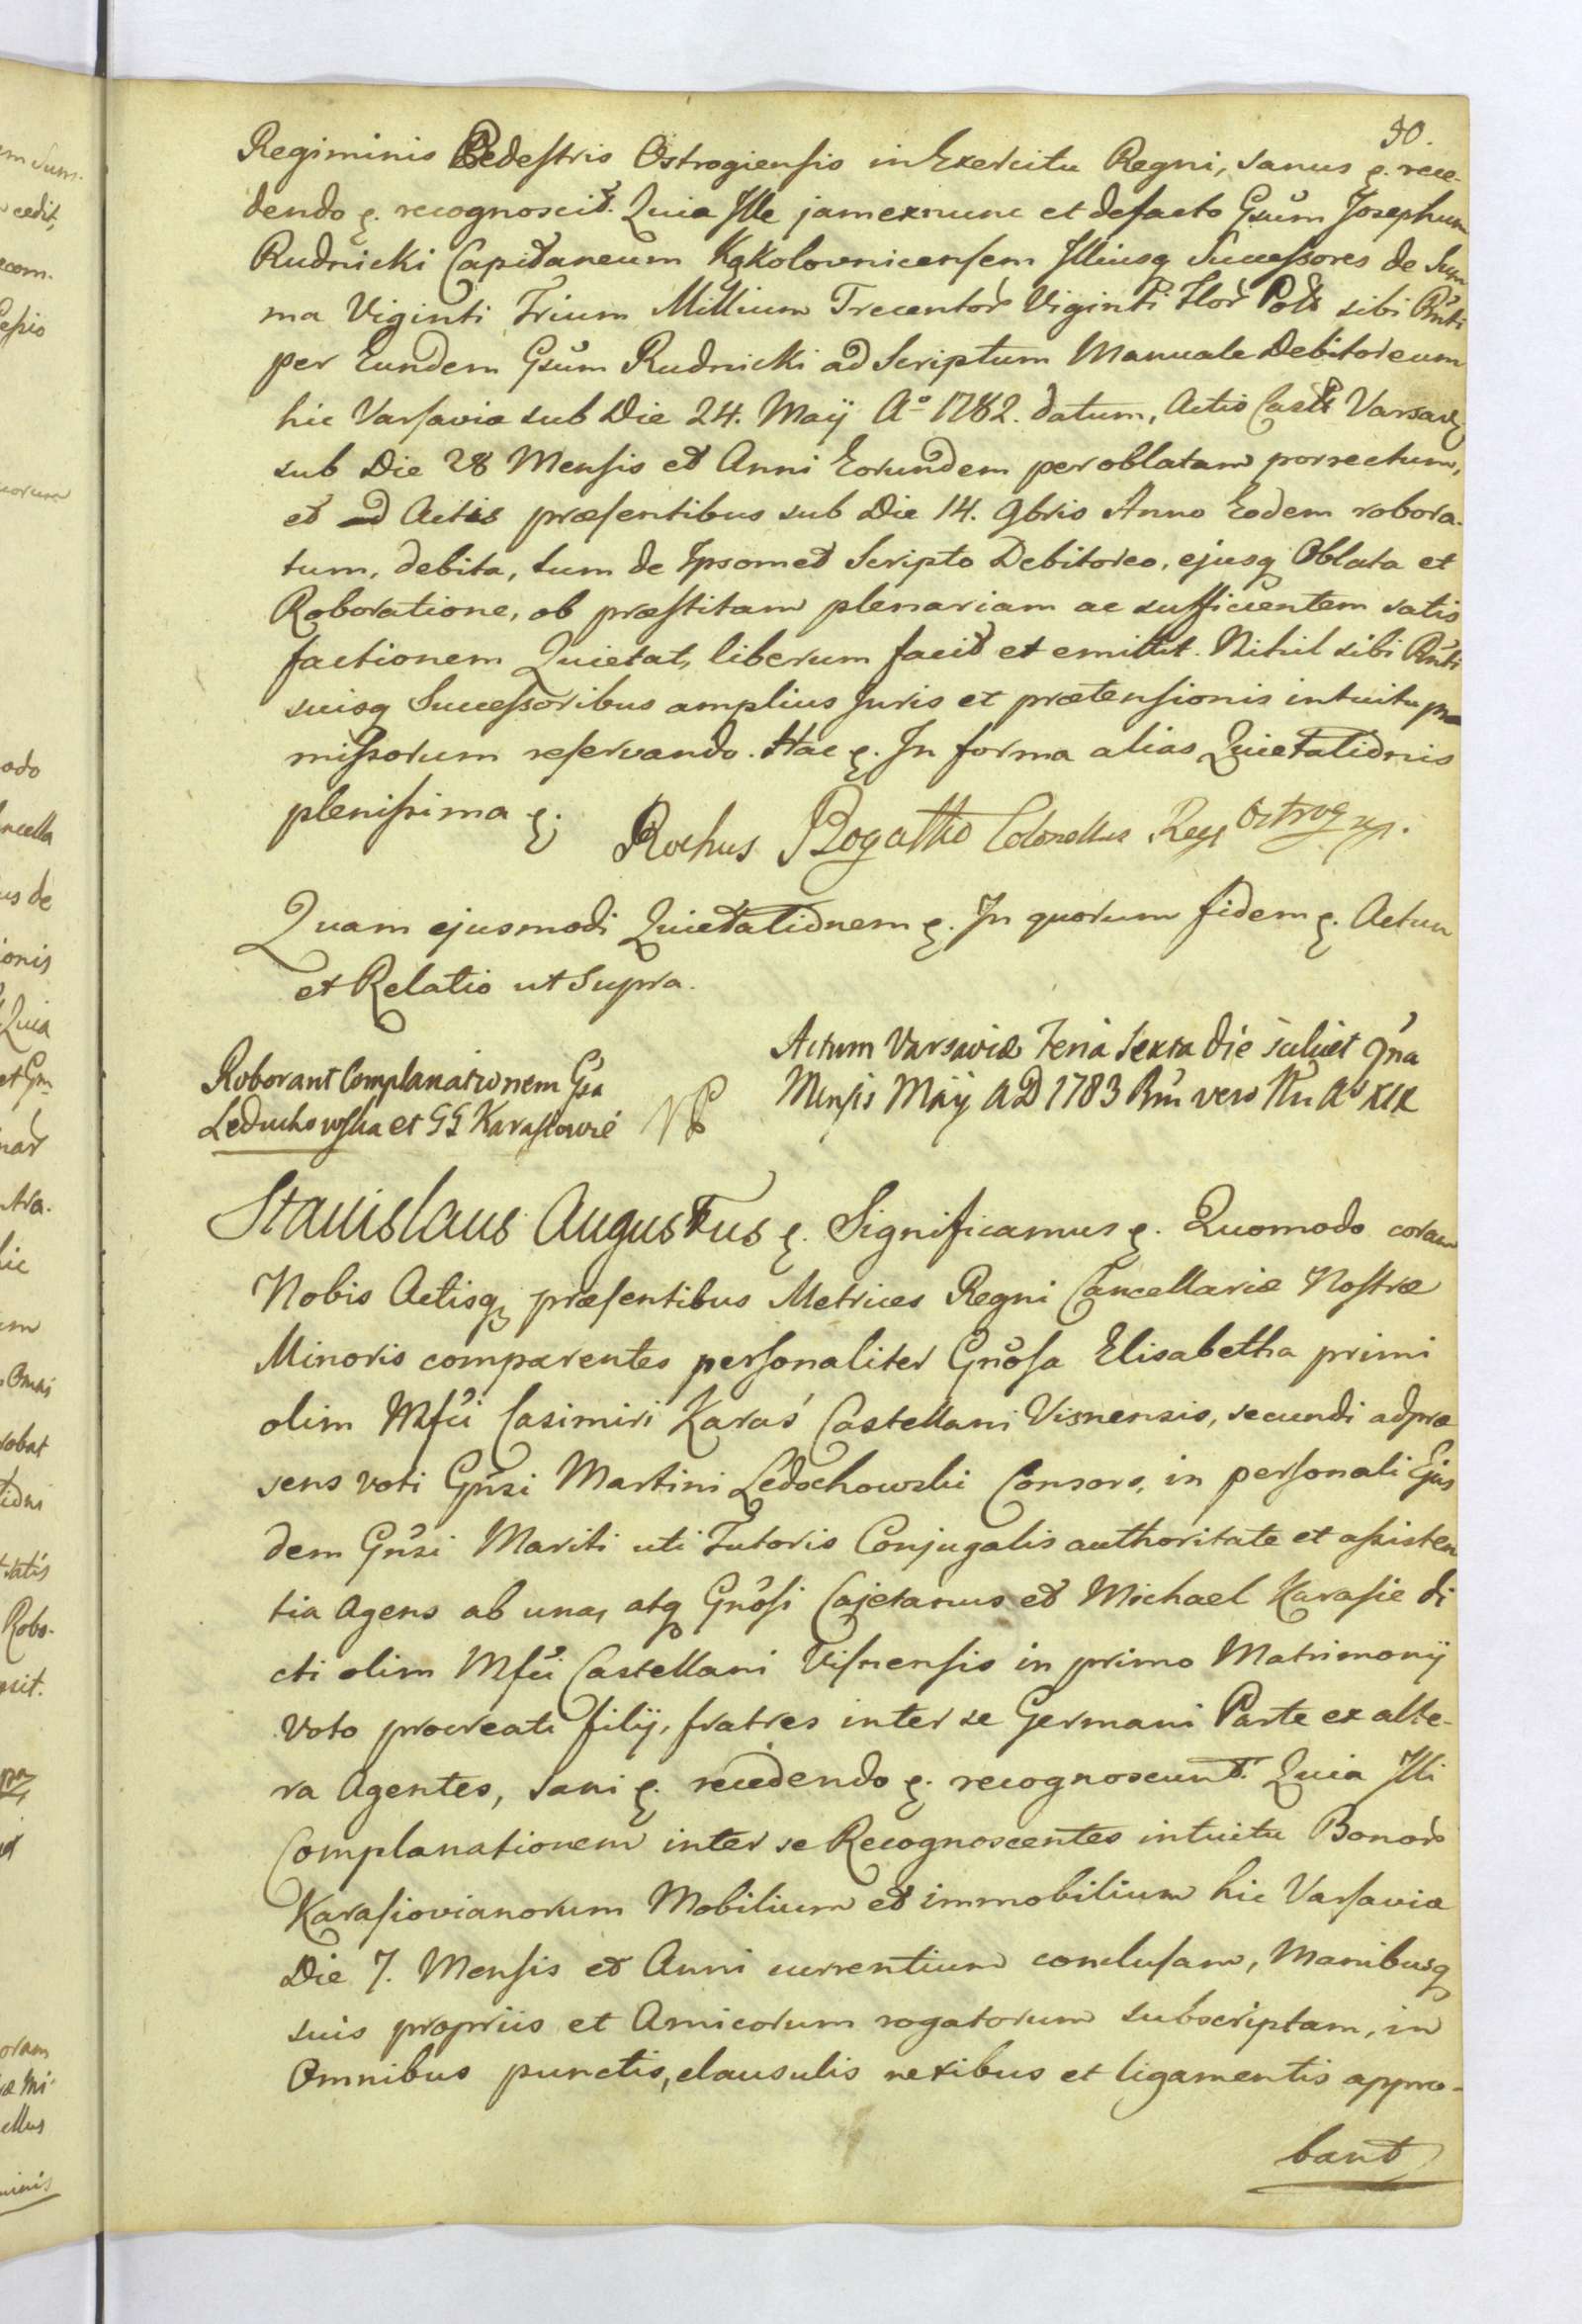 30.
Regiminis Pedestris Ostrogiensis in Exercitu Regni, sanus ę. rece-
dendo ę. recognoscit. Quia Ille jam ex nunc et de facto Gsum Josephum
Rudnicki Capitaneum Kąkolovnicensem Illiusq Successores de Sum
ma Viginti Trium Millium Trecentor Viginti Flor Pol sibi Pnti
per Eundem Gsum Rudnicki ad Scriptum Manuale Debitoreum
hic Varsaviæ sub Die 24. Maÿ Aº 1782. datum, Actis Castr Varsav
sub Die 28 Mensis et Anni Eorundem per oblatam porrectum,
et Actis præsentibus sub Die 14. 9bris Anno Eodem robora-
tum, debita, tum de Ipsomet Scripto Debitoreo, ejusq Oblata et
Roboratione, ob præstitam plenariam ac sufficientem satis
factionem Quietat, liberum facit et emittit. Nihil sibi Pnti
suisq Successoribus amplius Juris et prætensionis intuitu præ
missorum reservando. Hac ę. In forma alias Quietationis
plenissima ę.
Rochus Bogatko Colonellus Reg Ostrog
Quam ejusmodi Quietationem ę. In quorum fidem ę. Actum
et Relatio ut Supra.
Roborant Complanationem Gsa
Leduchowska et GG Karasiowie
Actum Varsaviæ Feria Sexta die scilicet 9na
Mensis Maÿ AD 1783 Rni vero Nri Aº XIX
Stanislaus Augustus ę. Significamus ę. Quomodo coram
Nobis Actisq præsentibus Metrices Regni Cancellariæ Nostræ
Minoris comparentes personaliter Gnosa Elisabetha primi
olim Mfci Casimiri Karaś Castellani Visnensis, secundi ad præ
sens voti Gnsi Martini Ledochowski Consors, in personali Ejus
dem Gnsi Mariti uti Tutoris Conjugalis authoritate et assisten
tia Agens ab una, atq Gnosi Cajetanus et Michael Karasie di
cti olim Mfci Castellani Visnensis in primo Matrimonÿ
Voto procreati filÿ, fratres inter se Germani Parte ex alte-
ra Agentes, Sani ę. recedendo ę. recognoscunt. Quia Illi
Complanationem inter se Recognoscentes intuitu Bonor
Karasiovianorum Mobilium et immobilium hic Varsaviæ
Die 7. Mensis et Anni currentium conclusam, Manibusq
suis propriis et Amicorum rogatorum subscriptam, in
Omnibus punctis, clausulis nexibus et ligamentis appro-
bant